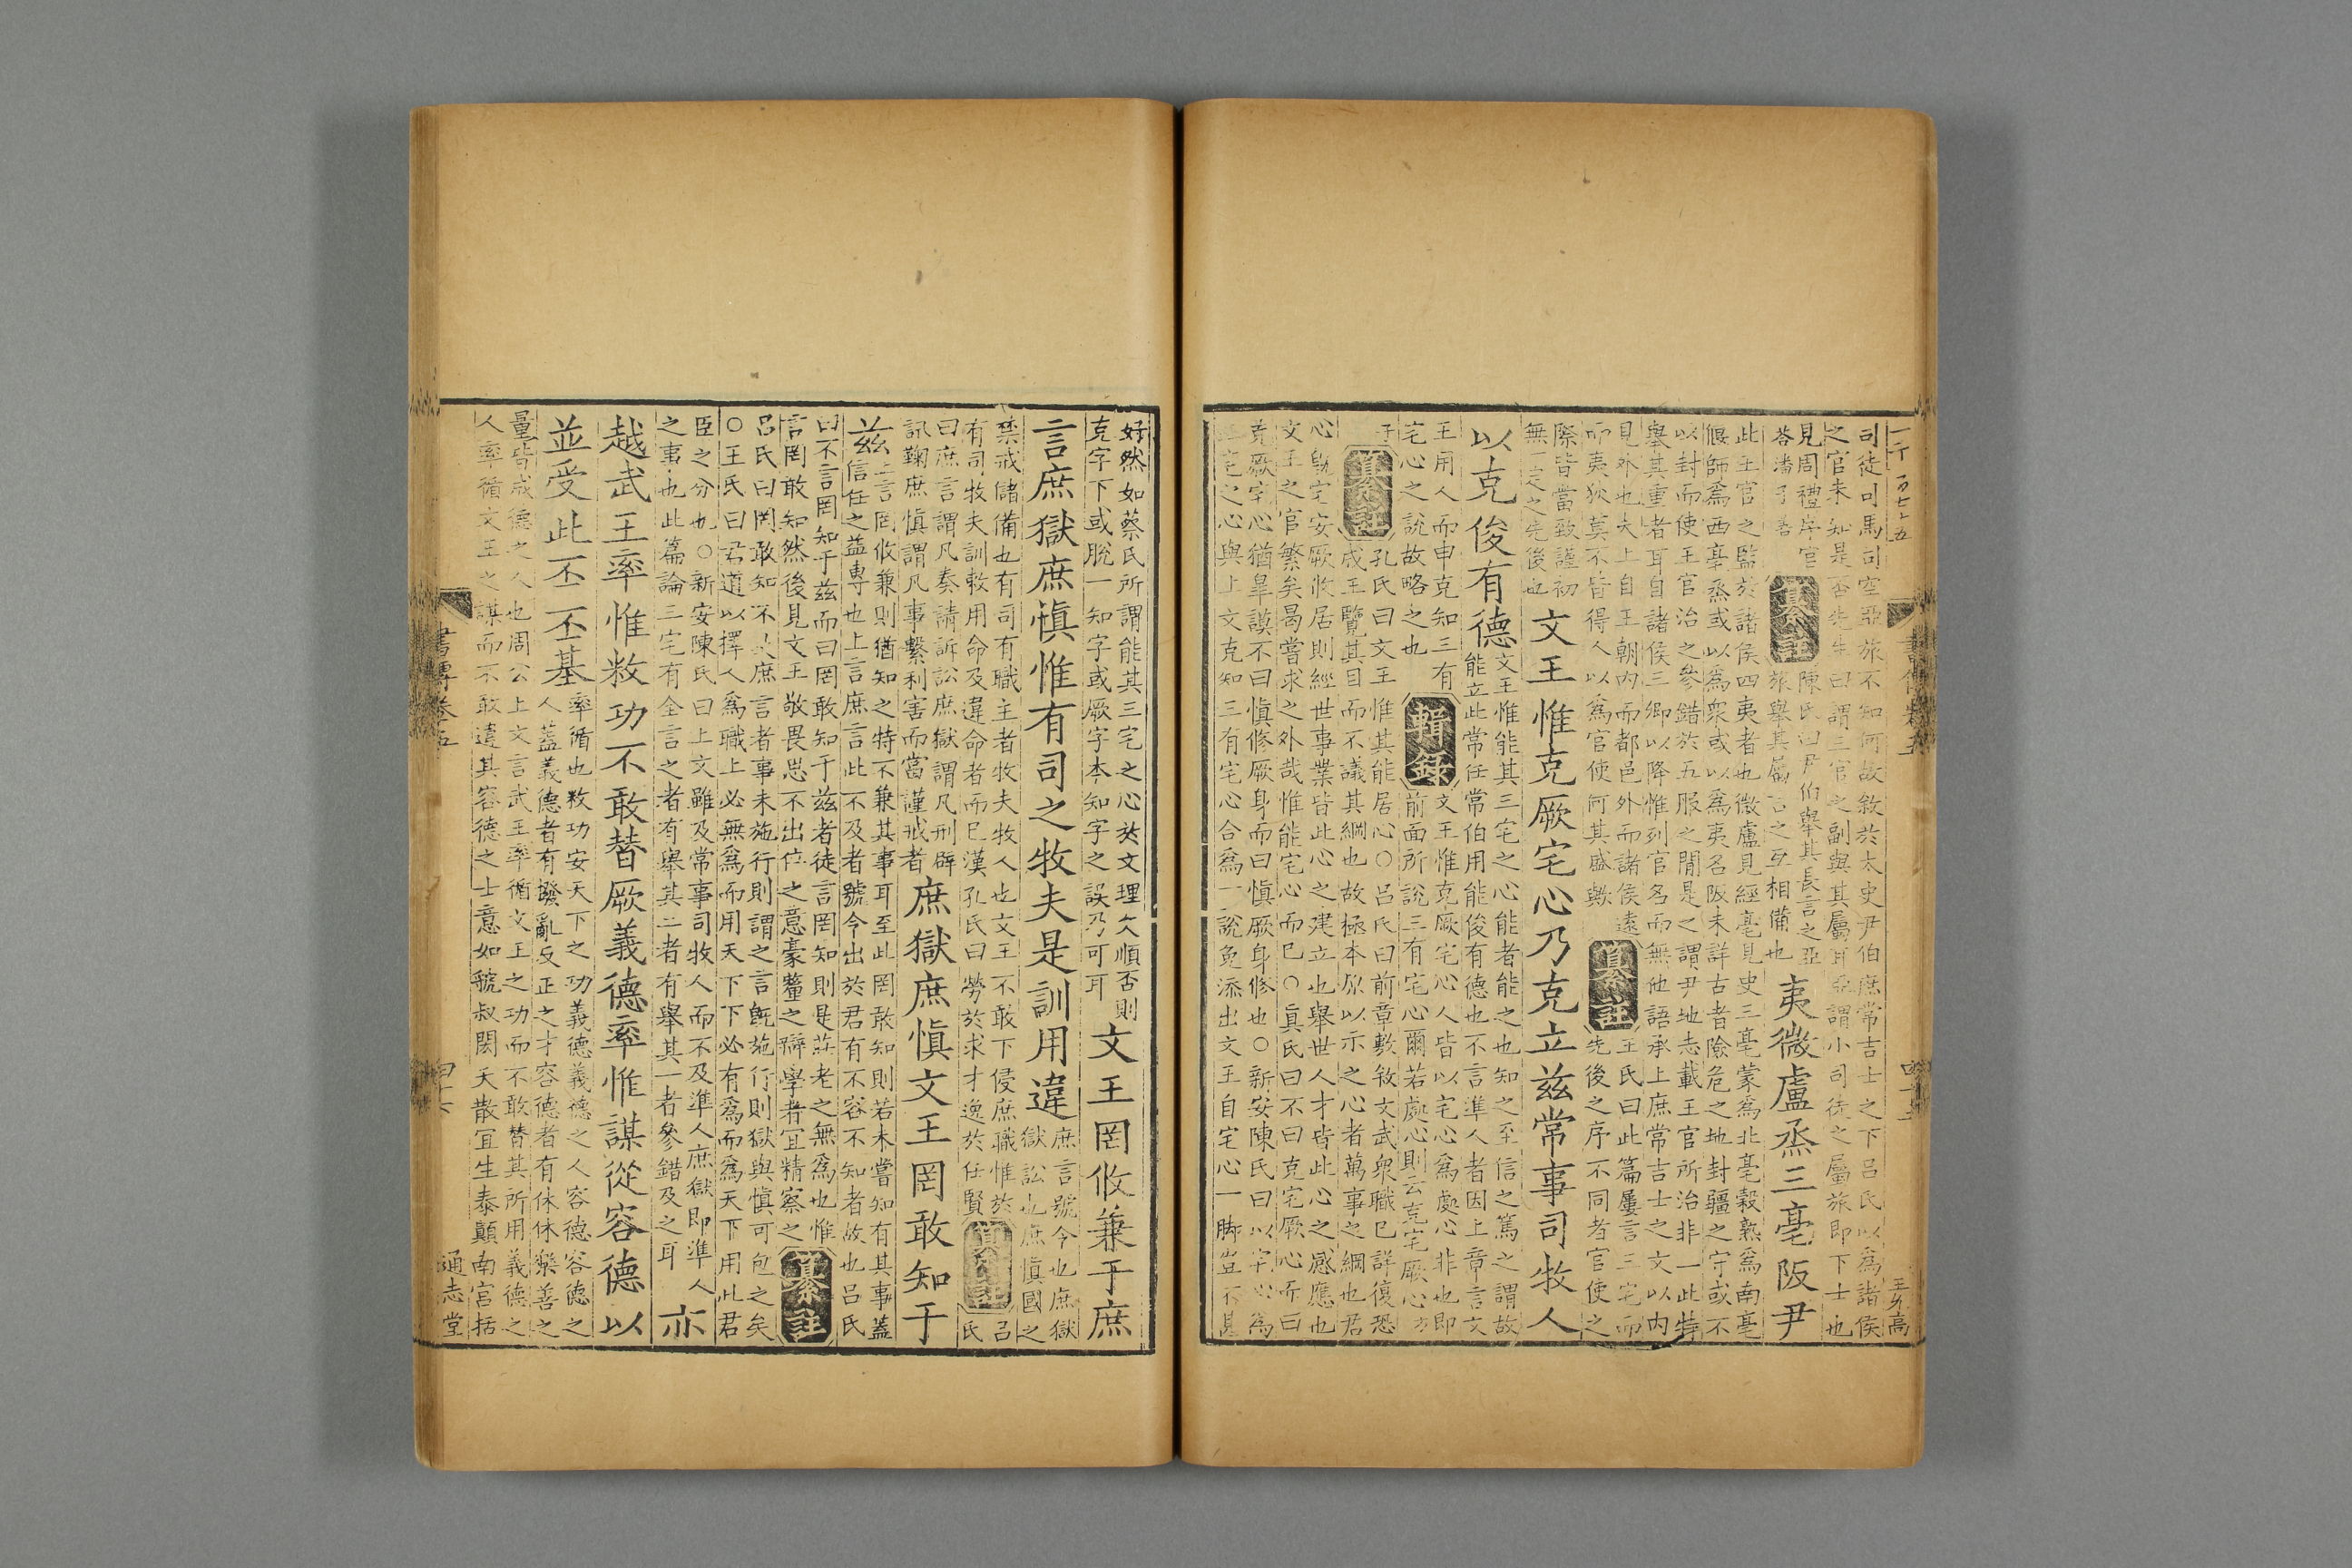 司徒司馬司空亞旅不知何故敘於太史尹伯庶常吉士之下呂氏以爲諸侯
之官未知是否先生曰謂三官之副與其屬耳亞謂小司徒之屬旅即下士也
見周禮序官
答潘子善
纂註
陳氏曰尹伯舉其長言之亞
旅舉其屬言之互相備也
夷微盧烝三亳阪尹
此王官之監於諸侯四夷者也微盧見經亳見史三亳蒙爲北亳穀熟爲南亳
偃師爲西亳烝或以爲衆或以爲夷名阪未詳古者險危之地封疆之守或不
以封而使王官治之參錯於五服之間是之謂尹地志載王官所治非一此特
舉其重者耳自諸侯三卿以降惟列官名而無他語承上庶常吉士之文以內
見外也夫上自王朝內而都邑外而諸侯遠
而夷狄莫不皆得人以爲官使何其盛歟
纂註
王氏曰此篇屢言三宅而
先後之序不同者官使之
際皆當致謹初
無一定之先後也
文王惟克厥宅心乃克立茲常事司牧人
以克俊有德
文王惟能其三宅之心能者能之也知之至信之篤之謂故
能立此常任常伯用能俊有德也不言準人者因上章言文
王用人而申克知三有
宅心之說故略之也
輯錄
文王惟克厥宅心人皆以宅心爲處心非也即
前面所說三有宅心爾若處心則云克宅厥心方
子
纂註
孔氏曰文王惟其能居心○呂氏曰前章敷敘文武衆職已詳復恐
成王覽其目而不議其綱也故極本原以示之心者萬事之綱也君
心旣宅安厥攸居則經世事業皆此心之建立也舉世人才皆此心之感應也
文王之官繁矣曷嘗求之外哉惟能宅心而已○眞氏曰不曰克宅厥心而曰
克厥宅心猶臯謨不曰愼修厥身而曰愼厥身修也○新安陳氏曰以宅心爲
宅之心與上文克知三有宅心合爲一說免添出文王自宅心一脚豈不甚
書傳卷五
好然如蔡氏所謂能其三宅之心於文理欠順否則
克字下或脫一知字或厥字本知字之誤乃可耳
文王罔攸兼于庶
言庶獄庶愼惟有司之牧夫是訓用違
庶言號令也庶獄
獄訟也庶愼國之
禁戒儲備也有司有職主者牧夫牧人也文王不敢下侵庶職惟於
有司牧夫訓敕用命及違命者而已漢孔氏曰勞於求才逸於任賢
纂註
呂
氏
曰庶言謂凡奏請訴訟庶獄謂凡刑辟
訊鞫庶愼謂凡事繫利害而當謹戒者
庶獄庶愼文王罔敢知于
茲
上言罔攸兼則猶知之特不兼其事耳至此罔敢知則若未嘗知有其事蓋
信任之益專也上言庶言此不及者號令出於君有不容不知者故也呂氏
曰不言罔知于茲而曰罔敢知于茲者徒言罔知則是莊老之無爲也惟
言罔敢知然後見文王敬畏思不出位之意豪釐之辯學者宜精察之
纂註
呂氏曰罔敢知不及庶言者事未施行則謂之言旣施行則獄與愼可包之矣
○王氏曰君道以擇人爲職上必無爲而用天下下必有爲而爲天下用此君
臣之分也○新安陳氏曰上文雖及常事司牧人而不及準人庶獄即準人
之事也此篇論三宅有全言之者有舉其二者有舉其一者參錯及之耳
亦
越武王率惟敉功不敢替厥義德率惟謀從容德以
並受此丕丕基
率循也敉功安天下之功義德義德之人容德容德之
人蓋義德者有撥亂反正之才容德者有休休樂善之
量皆成德之人也周公上文言武王率循文王之功而不敢替其所用義德之
人率循文王之謀而不敢違其容德之士意如虢叔閎夭散宜生泰顚南宮括
書傳卷五
通志堂